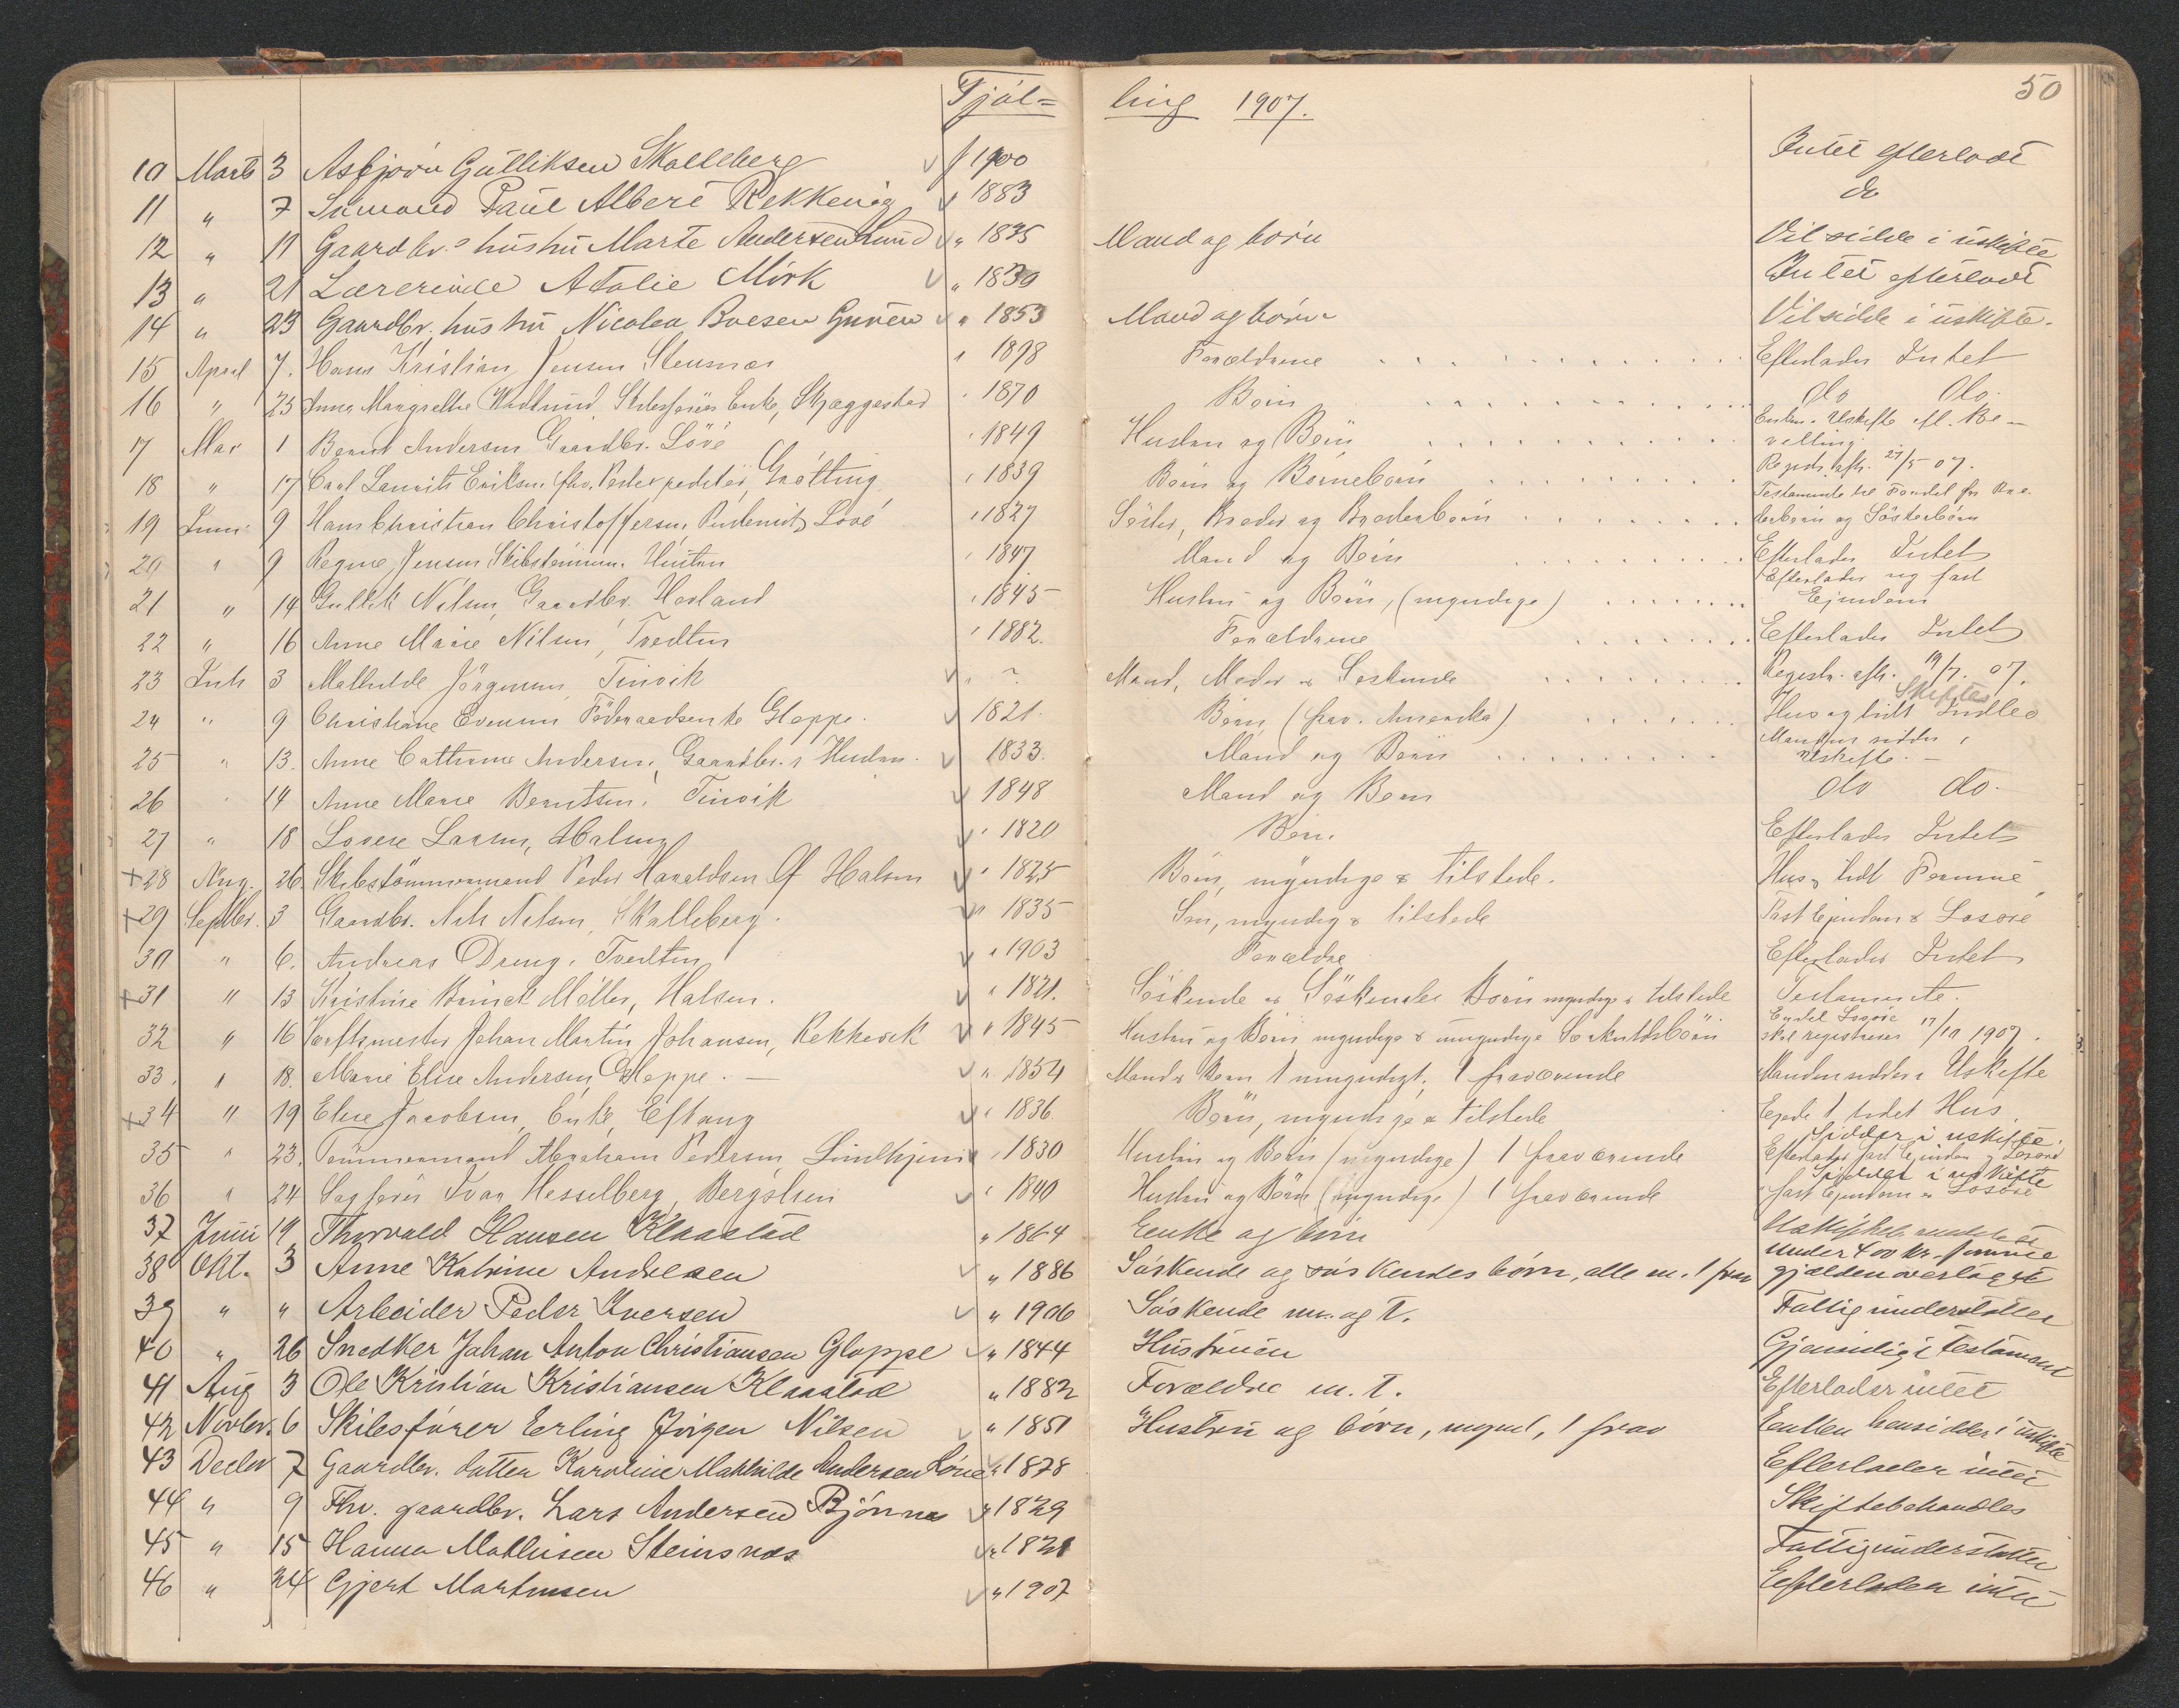 Tjöl= ling 1907. 50
10 Marts 3 Asbjørn Gulliksen Skalleberg f 1900 Intet efterladt
11 " 7 Paul Albert Rekkevig " 1883 do
12 " 11 Gaardbr.s hustru Marte Andersen Lund " 1835 Mand og børn Vil sidde i uskifte
13 " 21 Lærerinde Atalie Mørk " 1830 Intet efterladt
14 " 23 Gaardbr. hustru Nicolea Boesen Guren " 1853 Mand og børn Vil sidde i uskifte.
15 April 7. Hans Kristian Jensen Stensnæs " 1898 Forældrene Efterlader Intet
16 " 25 Anna Margrethe Wadlund, Skibsførers Enke, Skjæggestad " 1870 Børn do do.
17 Mai 1 Bernt Andersen Gaardbr. Løvé " 1849 Hustru og Børn Enken Uskifte efl. Be-
villing.
18 " 17 Carl Laurits Eriksen fhv. Postexpeditør, Grøtting " 1839 Børn og Børnebørn Regist. afh. 27/5 07.
Testamente til Fordel for Bro-
19 Juni 9 Hans Christian Christoffersen, Løvé " 1827 Søster, Broder og Broderbørn derbørn og Søsterbørn
20 " 9 Regine Jensen Skibstømmerm. Hustru " 1847 Mand og Børn Efterlader Intet
21 " 14 Gullik Nilsen, Gaardbr. Hovland " 1845 Hustru og Børn, (myndige) Efterlader sig fast
Ejendom
22 " 16 Anne Marie Nilsen, Tvedten " 1882. Forældrene Efterlader Intet
23 Juli 3 Mathilde Jörgensen, Tinvik " ? Mand, Moder & Søskende Registr. afh. 19/7. 07.
Skiftes
24 " 9 Christiane Evensen Föderaadsenke Gloppe. 1821. Børn (frav. Amerika) Hus og lidt Indbo
25 " 13. Anne Cathrine Andersen, Gaardbr.s Hustru. 1833. Mand og Børn Manden sidder i
Uskifte.
26 " 14 Anne Marie Berntsen, Tinvik 1848 Mand og Børn do do.
27 " 18 Lovise Larsen, Halsen " 1820 Børn. Efterlader Intet
+28 Aug. 26 Skibstömmermand Peder Haraldsen Of Halsen " 1825 Börn, myndige & tilstede. Hus & lidt Penninge
+29 Septbr. 3 Gaardbr. Nils Nilsen, Skalleberg. " 1835 Sön, myndig & tilstede Fast Ejendom & Lösöre
30 " 6. Andreas Dreng, Tvedten " 1903 Forældre Efterlader Intet
+31 " 13 Kristine Brinck Möller, Halsen. " 1821. Söskende & Söskendes Börn myndige & tilstede Testamente.
Endel Lösöre
32 " 16 Værftsmester Johan Martin Johansen, Rekkevik " 1845 Hustru og Börn myndige & umyndige Særkuldsbörn skal registreres 17/10 1907.
33. " 18. Marie Elise Andersen, Gloppe. " 1854 Mand & Børn 1 umyndigt, 1 fraværende Manden sidder i Uskifte
+34 " 19 Elise Jacobsen, Enke, Eftang " 1836 Börn, myndige & tilstede Ejede 1 lidet Hus
Sidder i uskifte.
35 " 23. Tømmermand Abraham Pedersen Lindhjem " 1830 Hustru og Börn (myndige) 1 fraværende Efterlader fast Ejendom & Lösöre
Sidder i uskifte
36 " 24 Sagfører Ivar Hesselberg, Bergsløen " 1840 Hustru og Börn (myndige) 1 fraværende " fast Ejendom & Lösöre
37 Juni 19 Thorvald Hansen Klaastad " 1864 Enke og börn
38 Okt. 3 Anne Katrine Andresen " 1886 Söskende og söskendes börn, alle m. 1 frav under 400 kr.
gjælden overtaget
39 " " Arbeider Peder Iversen " 1906 Söskende m. og t. Fattigunderstøttet
40 " 26 Snedker Johan Anton Christiansen Gloppe " 1844 Hustruen Gjensidigt testament
41 Aug 3 Ole Kristian Kristiansen Klaastad " 1882 Forældre m. t. Efterlader intet
42 Novbr. 6 Skibsfører Erling Jörgen Nilsen " 1851 Hustru og börn, mynd, 1 frav Enken hensidder i uskifte
43 Decbr 7 Gaardbr. datter Karoline Mathilde Andersen Löve " 1878 Efterlader intet
44 " 9 Fhv. gaardbr. Lars Andersen Bjönnes " 1829 Skiftebehandles
45 " 15 Hanna Mathisen Steinsnæs " 1821 Fattigunderstøttet
46 " 24 Gjert Martinsen " 1907 Efterlader intet